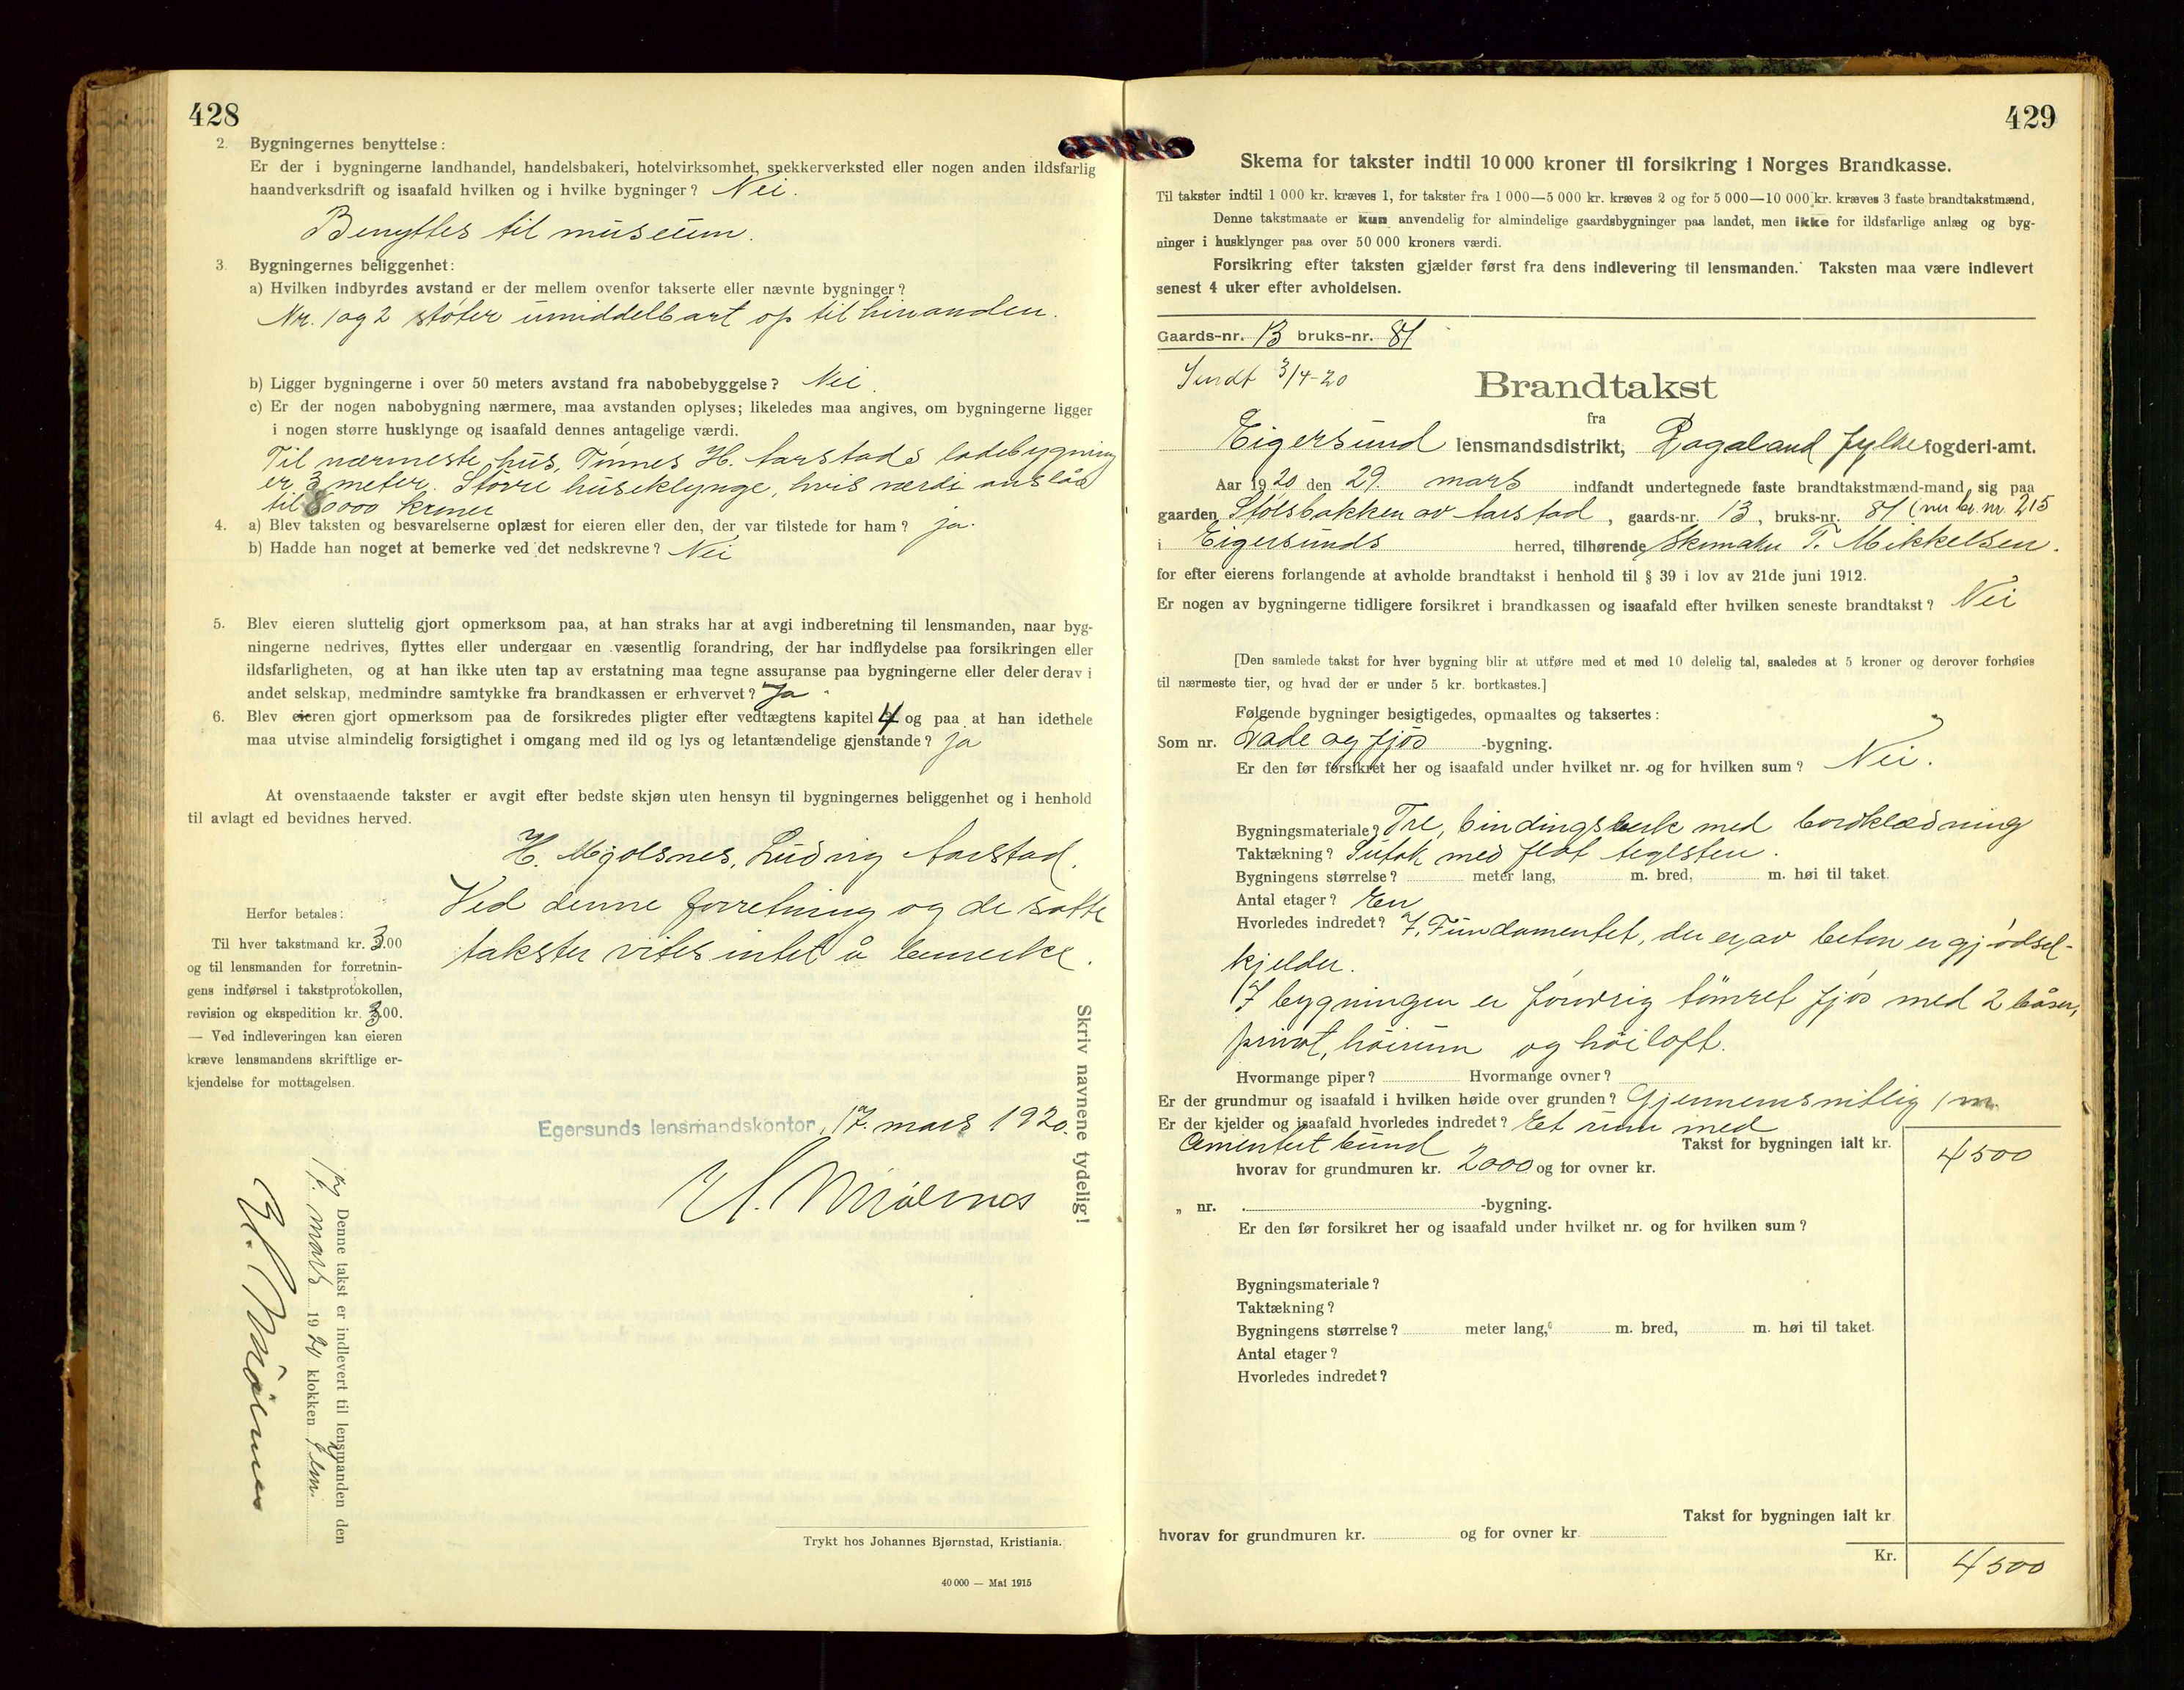 428
2. Bygningernes benyttelse:
Er der i bygningerne landhandel, handelsbakeri, hotelvirksomhet, snekkerverksted eller nogen anden ildsfarlig
haandverksdrift og isaafald hvilken og i hvilke bygninger? Nei.
Benyttes til museum.
3. Bygningernes beliggenhet:
a) Hvilken indbyrdes avstand er der mellem ovenfor takserte eller nævnte bygninger?
Nr. 1 og 2 støter umiddelbart op til hinanden.
b) Ligger bygningerne i over 50 meters avstand fra nabobebyggelse? Nei.
c) Er der nogen nabobygning nærmere, maa avstanden oplyses; likeledes maa angives, om bygningerne ligger
i nogen større husklynge og isaafald dennes antagelige værdi.
Til nærmeste hus, Tønnes H. Aarstads ladebygning
er 3 meter. Større huseklynge, hvis værdi anslåes
til 80000 kroner
4. a) Blev taksten og besvarelserne oplæst for eieren eller den, der var tilstede for ham? ja.
b) Hadde han noget at bemerke ved det nedskrevne? Nei
5. Blev eieren sluttelig gjort opmerksom paa, at han straks har at avgi indberetning til lensmanden, naar byg-
ningerne nedrives, flyttes eller undergaar en væsentlig forandring, der har indflydelse paa forsikringen eller
ildsfarligheten, og at han ikke uten tap av erstatning maa tegne assuranse paa bygningerne eller deler derav i
andet selskap, medmindre samtykke fra brandkassen er erhvervet? Ja
6. Blev eieren gjort opmerksom paa de forsikredes pligter efter vedtægtens kapitel 4 og paa at han idethele
maa utvise almindelig forsigtighet i omgang med ild og lys og letantændelige gjenstande? ja
At ovenstaaende takster er avgit efter bedste skjøn uten hensyn til bygningernes beliggenhet og i henhold
til avlagt ed bevidnes herved.
H. Mjølsnes, Ludvig Aarstad.
Ved denne forretning og de satte
takster vites intet å bemerke.
Herfor betales:
Til hver takstmand kr. 3.00
og til lensmanden for forretnin-
gens indførsel i takstprotokollen,
revision og ekspedition kr. 3.00.
— Ved indleveringen kan eieren
kræve lensmandens skriftlige er-
kjendelse for mottagelsen.
Skriv navnene tydelig!
Egersunds lensmandskontor, 17. mars 1920.
H. Mjølsnes
Denne takst er indlevert til lensmanden den
17. mars 1920 klokken
H. Mjølsnes
Trykt hos Johannes Bjørnstad, Kristiania.
40 000 — Mai 1915
429
Skema for takster indtil 10 000 kroner til forsikring i Norges Brandkasse.
Til takster indtil 1 000 kr. kræves 1, for takster fra 1 000—5 000 kr. kræves 2 og for 5 000—10 000 kr. kræves 3 faste brandtakstmænd.
Denne takstmaate er kun anvendelig for almindelige gaardsbygninger paa landet, men ikke for ildsfarlige anlæg og byg-
ninger i husklynger paa over 50 000 kroners værdi.
Forsikring efter taksten gjælder først fra dens indlevering til lensmanden. Taksten maa være indlevert
senest 4 uker efter avholdelsen.
Gaards-nr. 13 bruks-nr. 81
Sendt 3/4-20
Brandtakst
fra
Eigersund lensmandsdistrikt, Rogaland fylke fogderi-amt.
Aar 1920 den 29. mars indfandt undertegnede faste brandtakstmænd-mand sig paa
gaarden Stølsbakken av Aarstad, gaards-nr. 13, bruks-nr. 81 (nu br. nr. 215
i Eigersunds herred, tilhørende Skomaker T. Mikkelsen.
for efter eierens forlangende at avholde brandtakst i henhold til § 39 i lov av 21de juni 1912.
Er nogen av bygningerne tidligere forsikret i brandkassen og isaafald efter hvilken seneste brandtakst? Nei
[Den samlede takst for hver bygning blir at utføre med et med 10 delelig tal, saaledes at 5 kroner og derover forhøies
til nærmeste tier, og hvad der er under 5 kr. bortkastes.]
Følgende bygninger besigtigedes, opmaaltes og taksertes:
Som nr. Lade og fjøs -bygning.
Er den før forsikret her og isaafald under hvilket nr. og for hvilken sum? Nei.
Bygningsmateriale? Tre, bindingsverk med bordklædning
Taktækning? Sutak med flat teglsten.
Bygningens størrelse? meter lang, m. bred, m. høi til taket.
Antal etager? En
Hvorledes indredet? I. Fundamentet, der er av beton er gjødsel-
kjelder.
I bygningen er forøvrig tømret fjøs med 2 båser,
privet, høirum og høiloft.
Hvormange piper? Hvormange ovner?
Er der grundmur og isaafald i hvilken høide over grunden? Gjennemsnitlig 1 m.
Er der kjelder og isaafald hvorledes indredet? Et rum med
cementert bund Takst for bygningen ialt kr. 4500
hvorav for grundmuren kr. 2000 og for ovner kr.
„ nr. -bygning.
Er den før forsikret her og isaafald under hvilket nr. og for hvilken sum?
Bygningsmateriale?
Taktækning?
Bygningens størrelse? meter lang, m. bred, m. høi til taket.
Antal etager?
Hvorledes indredet?
Takst for bygningen ialt kr
hvorav for grundmuren kr. og for ovner kr.
Kr. 4500